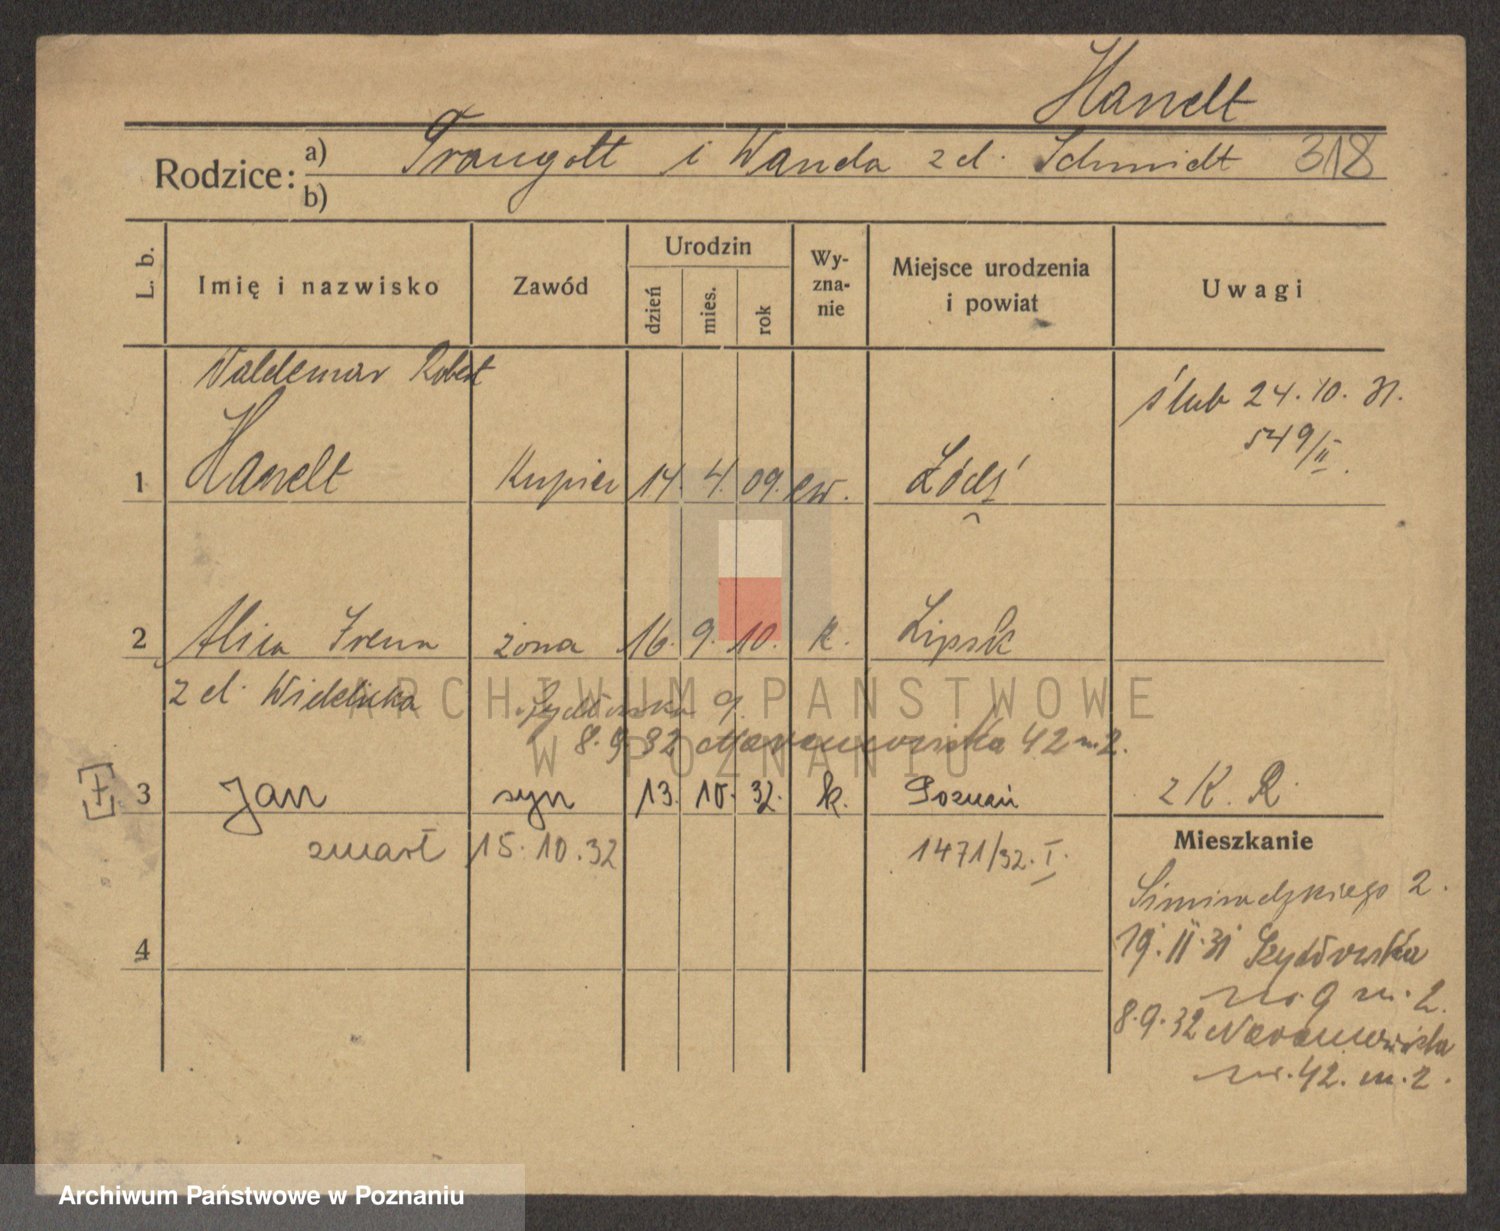 Handt
Rodzice: a) Traugott i Wanda z d. Schmidt 318
b)
L. b. Imię i nazwisko Zawód Urodzin dzień mies. rok Wy-zna-nie Miejsce urodzenia i powiat Uwagi
Waldemar Robert
ślub 24.10.31.
549/II.
1 Handt Kupiec 14. 4. 09. ew. Łódź
2 Alica Irena żona 16. 9. 10. k. Lipsk
z d. Szydłowska 9.
8.9.32 42 m 2.
ARCHIWUM PAŃSTWOWE
W POZNANIU
3 Jan syn 13. 10. 32. k. Poznań z K. R.
zmarł 15.10.32 1471/32. I.
Mieszkanie
Simiradzkiego 2.
19.II.31 Szydłowska
no 9 m. 2.
8.9.32 Naramowicka
nr. 42. m. 2.
4
Archiwum Państwowe w Poznaniu